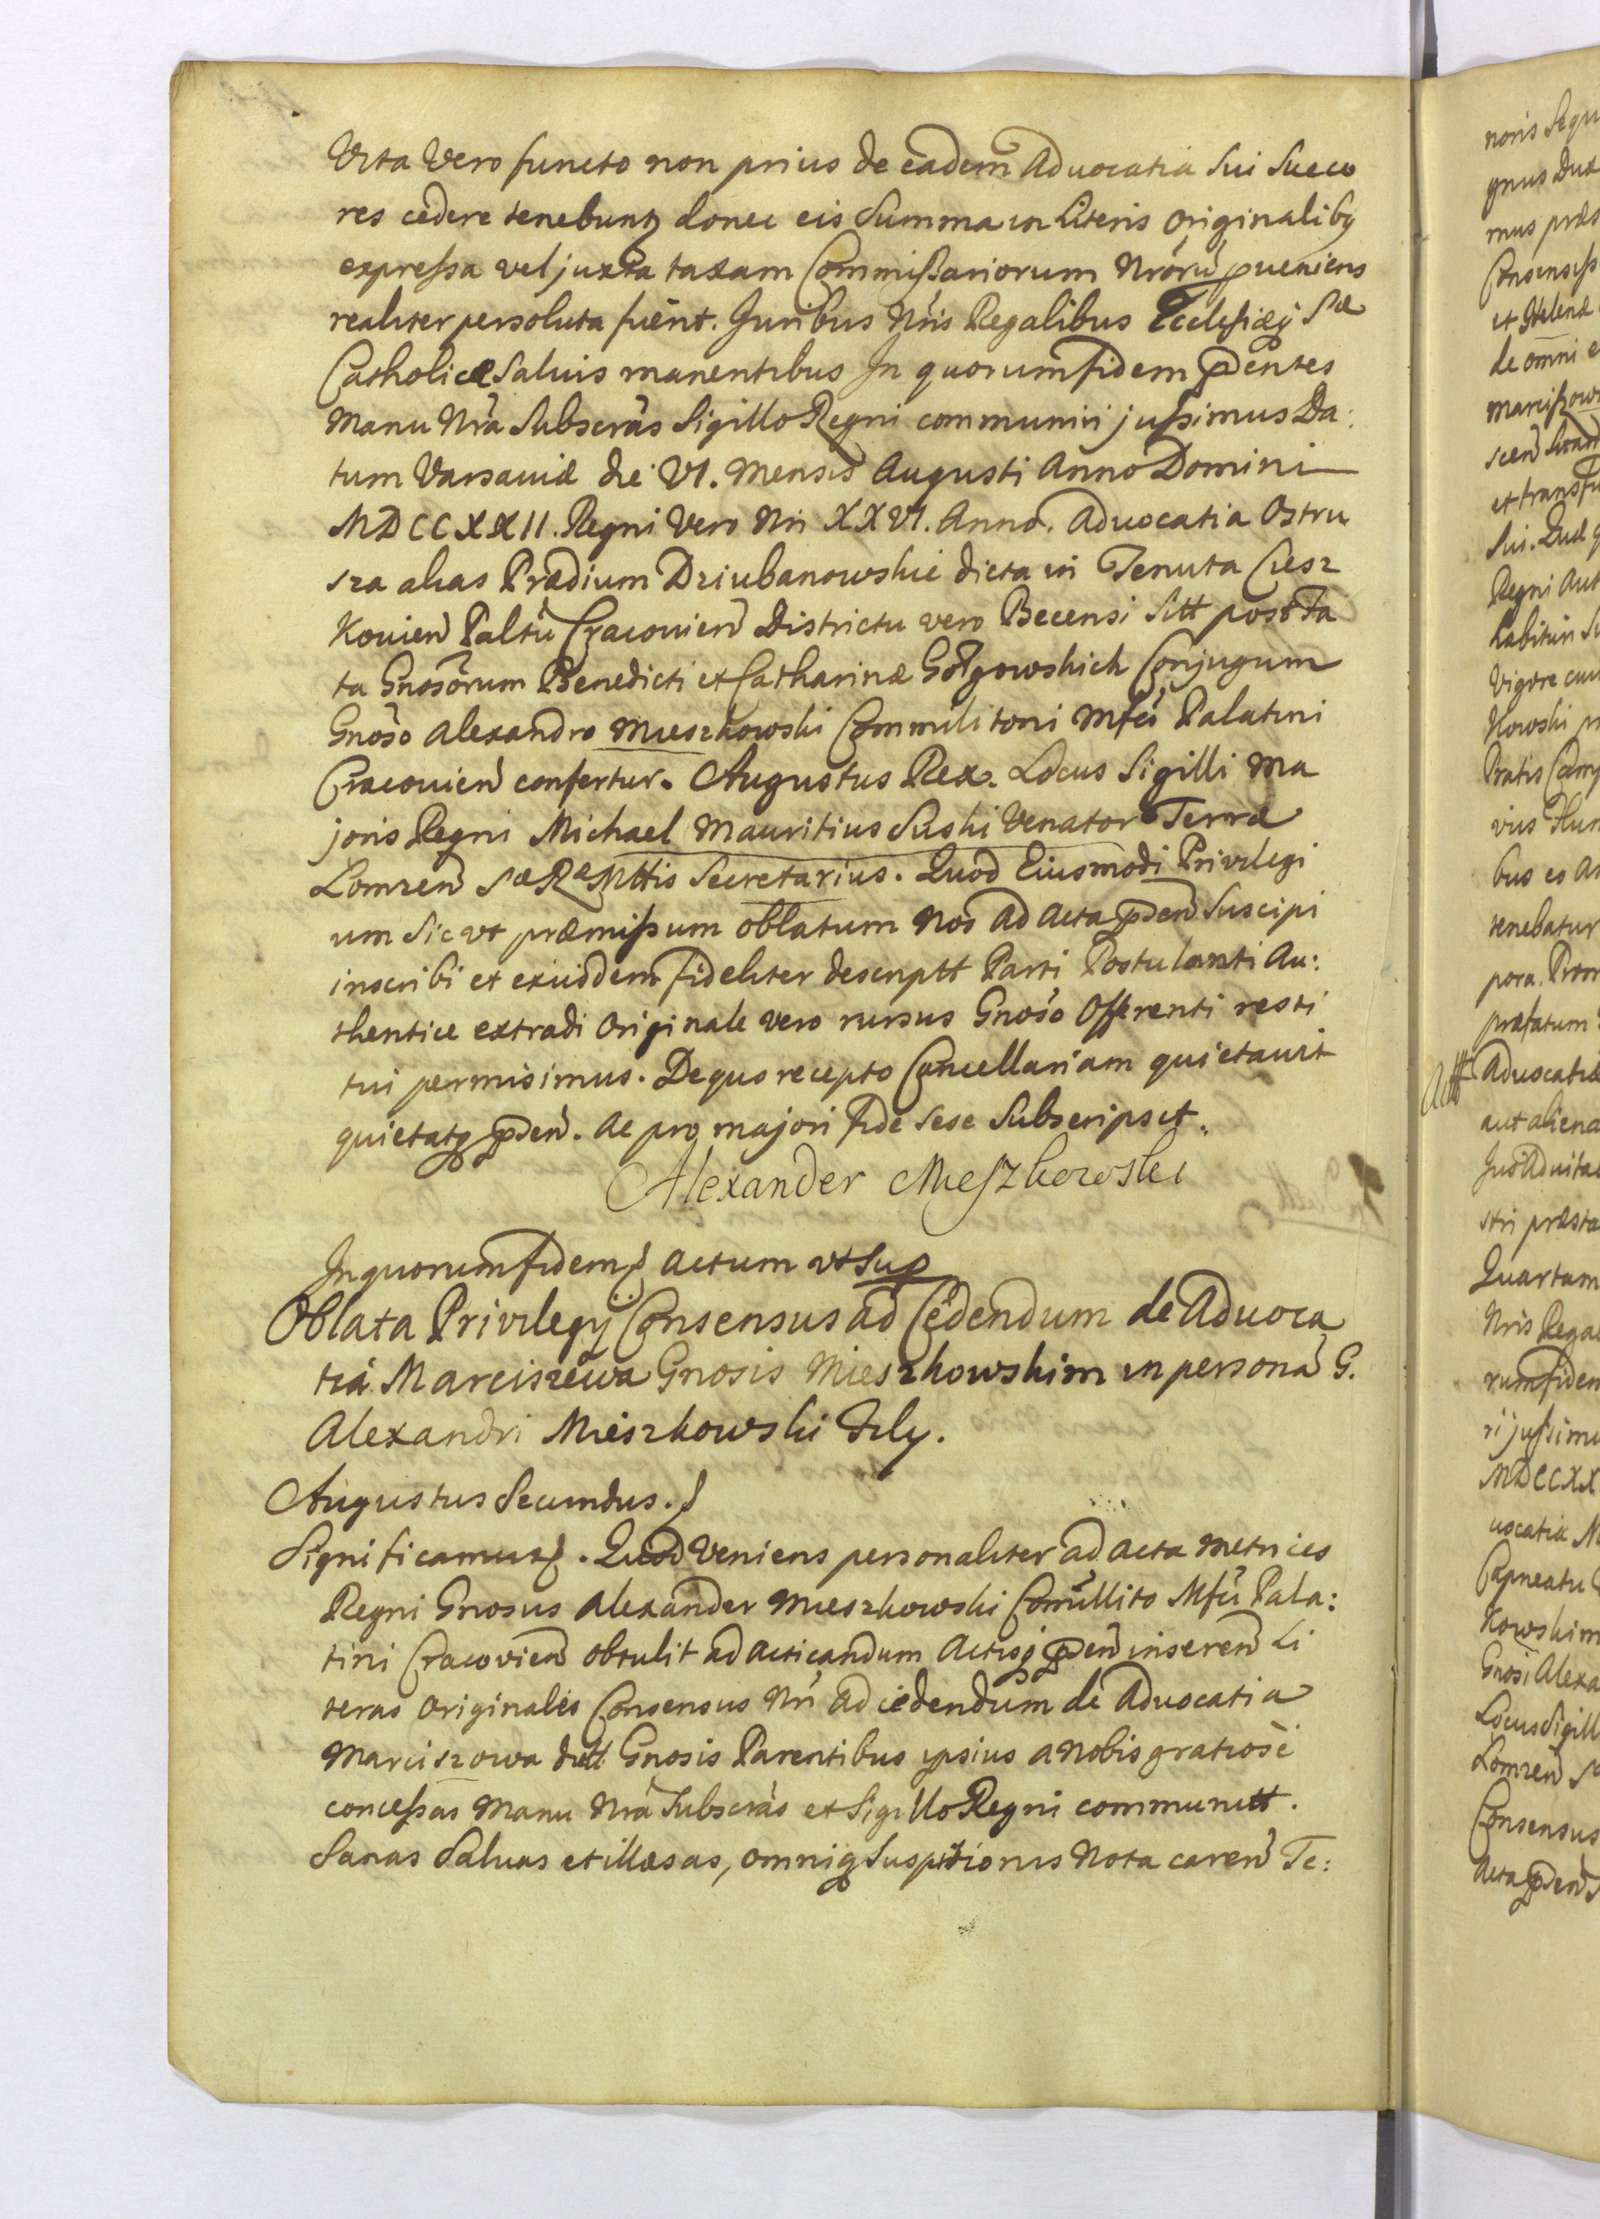 Vita Vero functo non prius de eadem Aduocatia Sui Succo
res cedere tenebuntꝫ donec eis Summa in Literis Originalibꝰ
expressa vel juxta taxam Commissariorum Nrorũ ꝓueniens
realiter persoluta fuerit. Juribus Nris Regalibus Ecclesiæqꝫ Sæ
Catholicæ Saluis manentibus In quorum fidem p̃ntes
Manu Nrã Subscrãs Sigillo Regni communiri jussimus Da:
tum Varsauiæ die VI. Mensis Augusti Anno Domini
MDCCXXII. Regni Vero Nri XXVI. Anno. Aduocatia Ostru
sza alias Prædium Dziubanowskie dicta in Tenuta Ciesz
kouieñ Paltũ Cracouieñ Districtu vero Becensi Sitt post Fa
ta Gnosorum Benedicti et Catharinæ Gołgowskich Conjugum
Gnoso Alexandro Mieszkowski Commilitoni Mfci Palatini
Cracouieñ confertur. Augustus Rex. Locus Sigilli Ma
joris Regni Michael Mauritius Suski Venator Terræ
Lomzeñ Sæ Ræ Mttis Secretarius. Quod Eiusmodi Privilegi
um Sic vt præmissum oblatum Nos ad Acta p̃señ Suscipi
inscribi et exiisdem fideliter descriptt Parti Postulanti Au:
thentice extradi Originale vero rursus Gnoso Offerenti resti
tui permisimus. De quo recepto Cancellariam quietauit
quietatqꝫ p̃señ. Ac pro majori fide Sese Subscripsit.
Alexander Mieszkowski
In quorum fidem ꝭ Actum vt Supꝭ
Oblata Privilegij Consensus ad Cedendum de Aduoca
tia Marciszewa Gnosis Mieszkowskim in persona G.
Alexandri Mieszkowski Filij.
Augustus Secundus. ꝭ
Significamus ꝭ. Quod Veniens personaliter ad Acta Metrices
Regni Gnosus Alexander Mieszkowski Com̃ilito Mfci Pala:
tini Cracovieñ obtulit ad acticandum Actisqꝫ p̃señ inserenñ Li
teras Originales Consensus Nri ad cedendum de Aduocatia
Marciszowa dictt Gnosis Parentibus ipsius a Nobis gratiose
concessas Manu Nrã Subscrãs et Sigillo Regni communitt.
Sanas Saluas et illæsas, omniqꝫ Suspitionis Nota careñ Te: